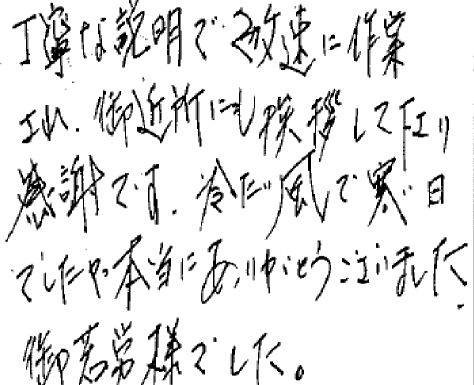 丁寧な説明で敏速に作業
され、御近所にも挨拶して下さり
感謝です。冷たい風で寒い日
でしたが本当にありがとうございました。
御苦労様でした。